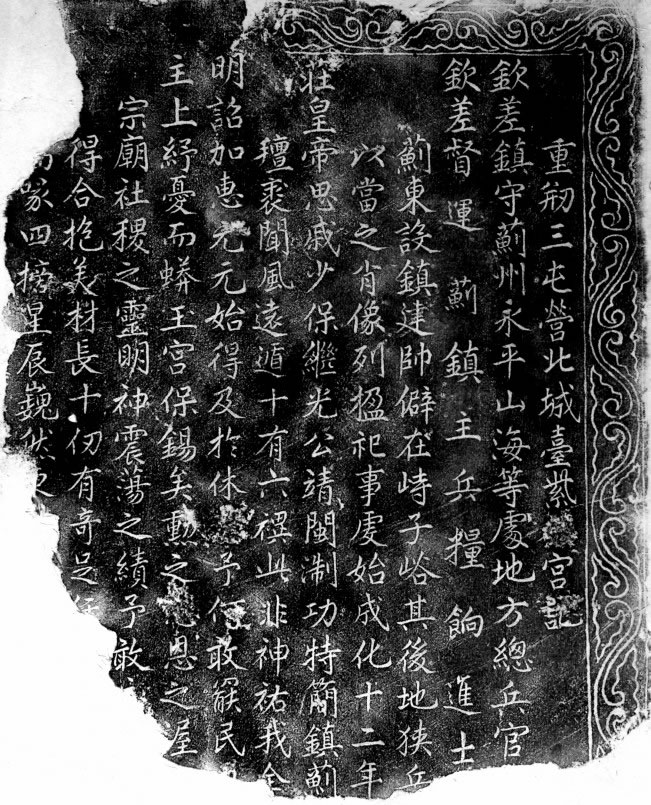 重剏三屯營北城臺紫宮記
欽差鎮守薊州永平山海等處地方總兵官
欽差督運薊鎮主兵糧餉進士
薊東設鎮建帥僻在峙子峪其後地狹兵
以當之肖像列楹祀事處始成化十二年
莊皇帝思戚少保繼光公靖閩淛功特簡鎮薊
氊裘聞風遠遁十有六禩此非神祐我全
明詔加惠元元始得及於休予何敢罷民
主上紓憂而蟒玉宮保錫矣動之恩之屋
宗廟社稷之靈明神震蕩之績予敢
得合抱美材長十仞有奇足
啄四榜星辰巍然